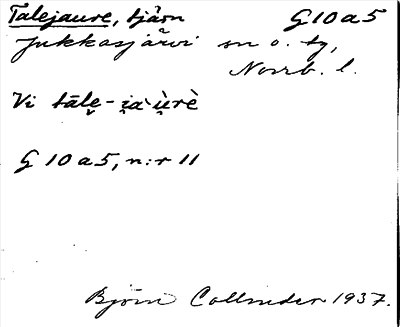 Talejaure, tjärn G10a5
Jukkasjärvi sn o. tg,
Norrb. l.
Vi tāle̮-i̯a`u̯rè
G 10 a 5, n:r 11
Björn Collinder 1937.